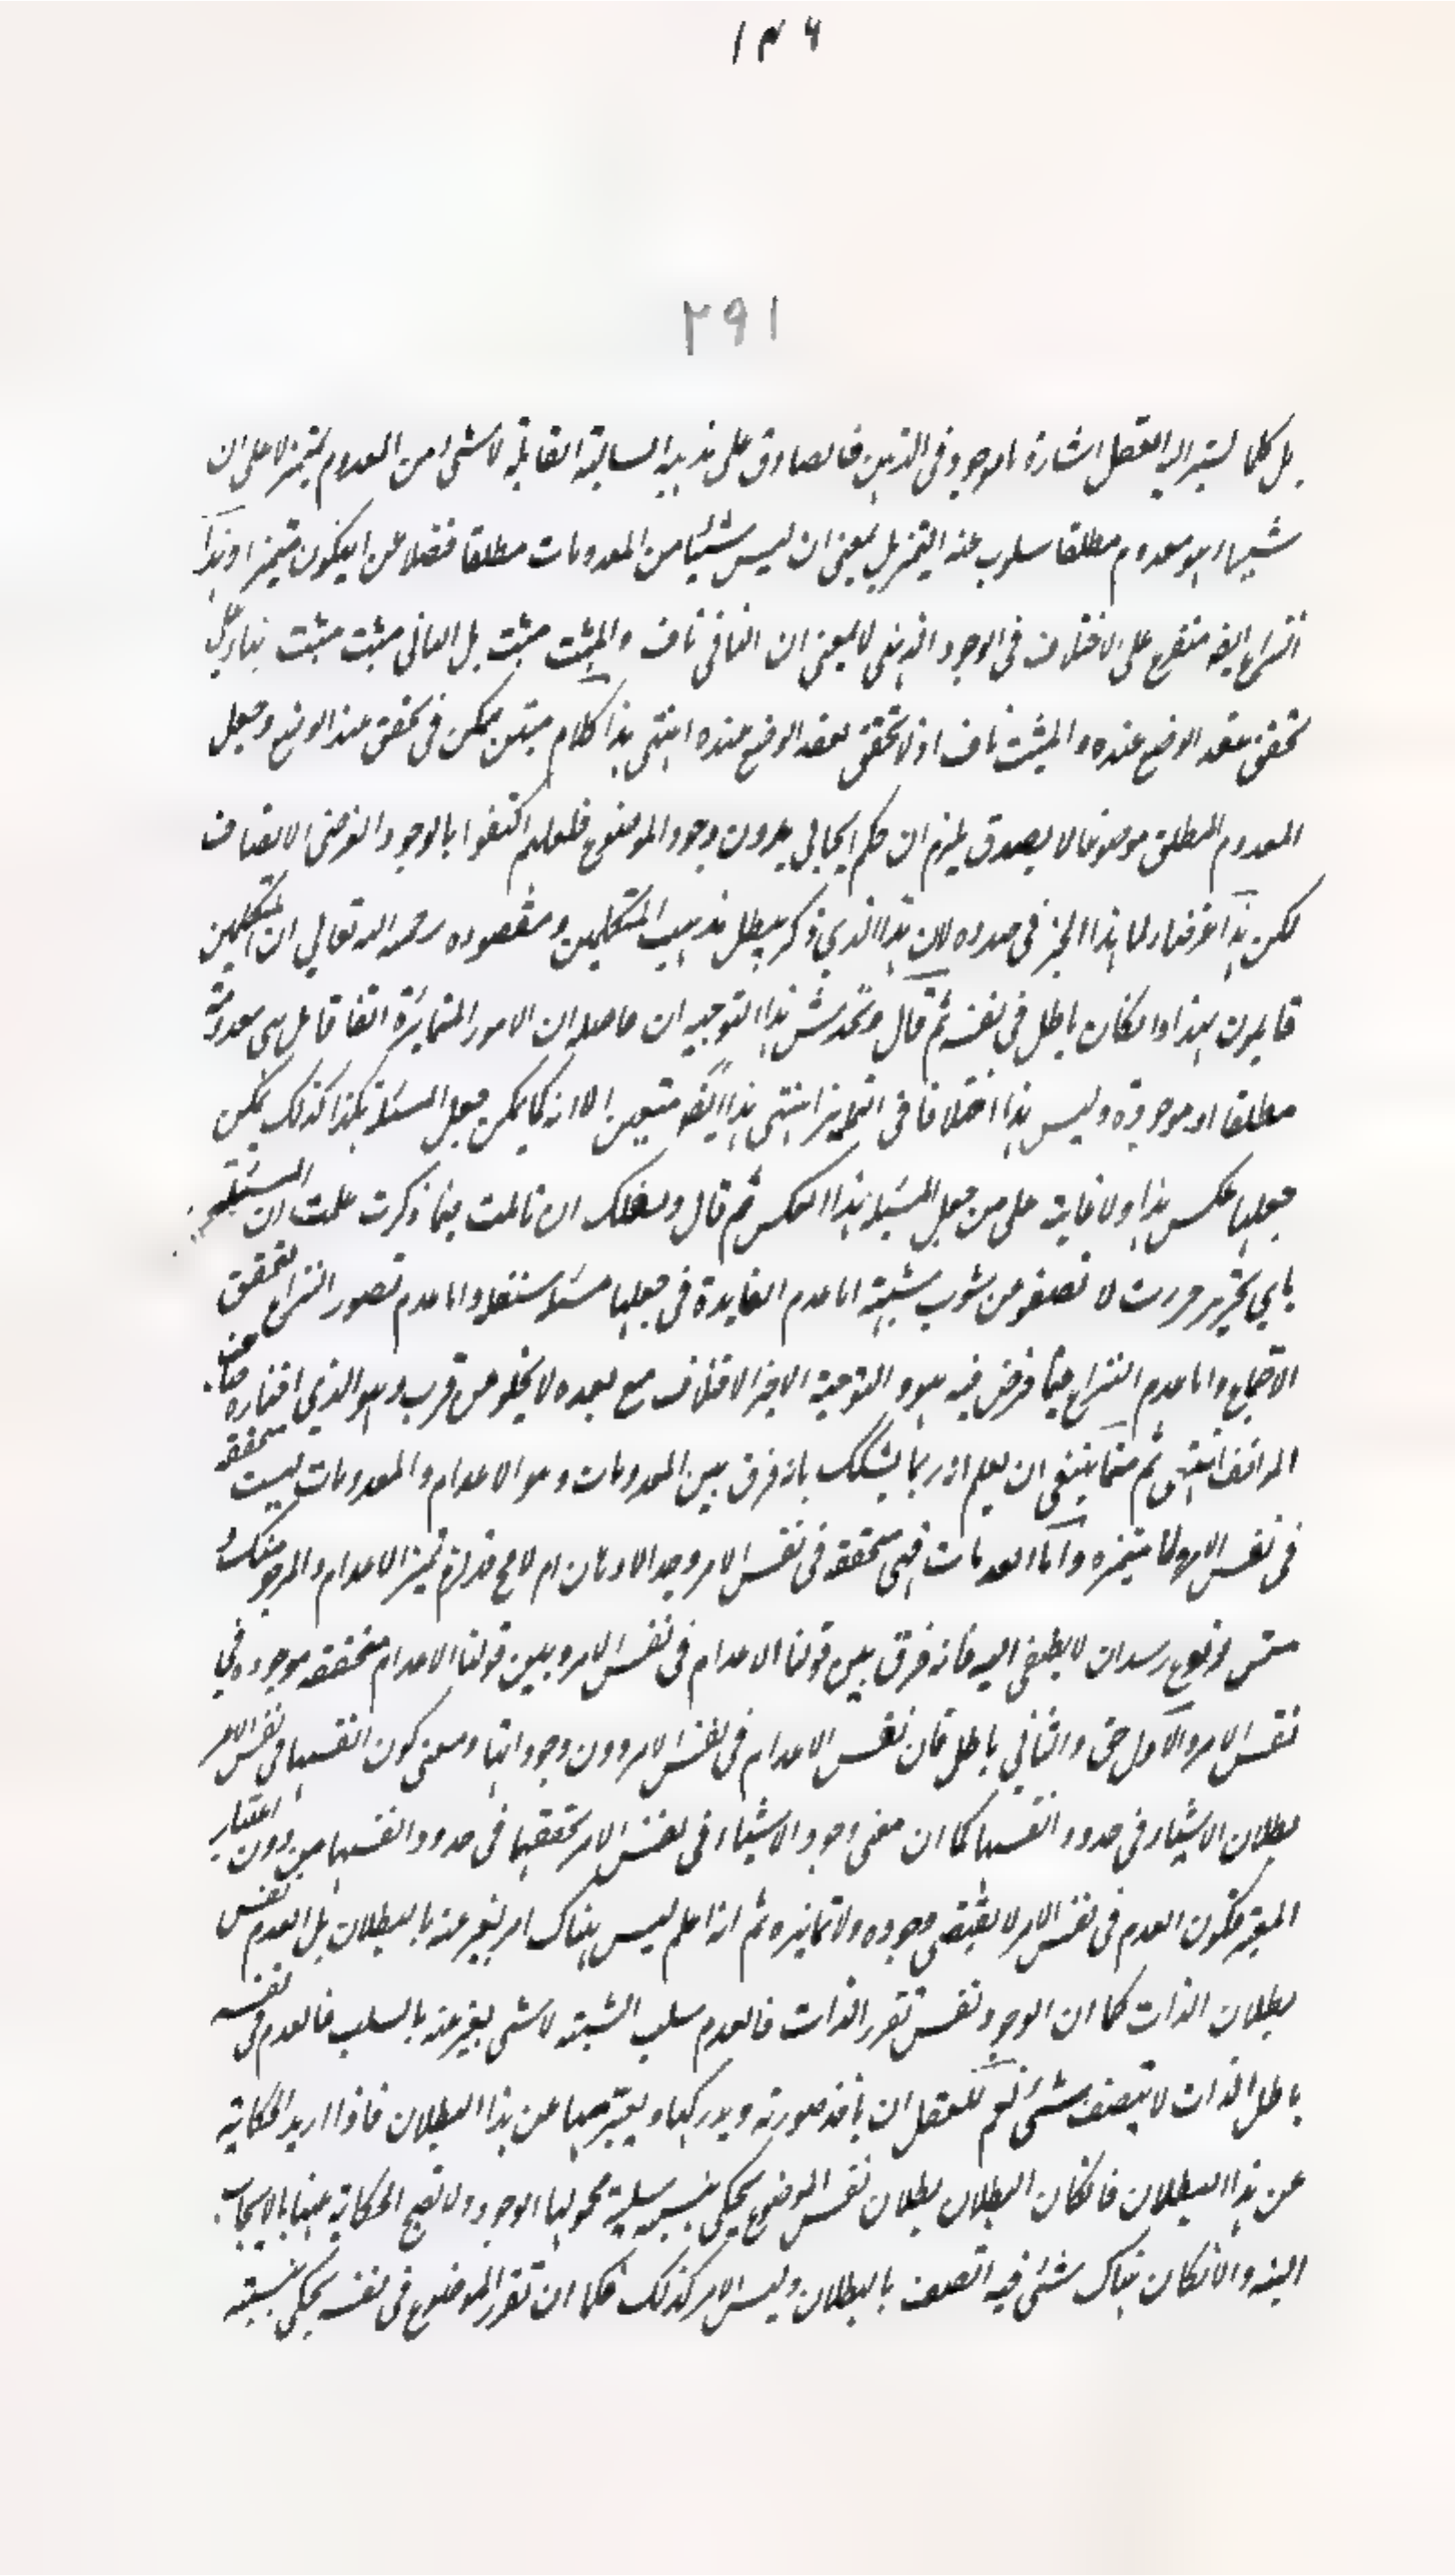 ١٣٦
٢٩١
بل كلما يشير اليه العقل اشارة ما موجود فى الذهن فالصادق على مذهبه السالبة القائلة لا شى من المعدوم بمتميز لا على ان
شيها هو معدوم مطلقا مسلوب عنه التميز بل بمعنى ان ليس شيئا من المعدومات مطلقا فضلا عن ان يكون متميزا وهذا
النزاع ايضا متفرع على الاختلاف فى الوجود الذهنى لا بمعنى ان النافى ناف والمثبت مثبت بل النافى مثبت مثبت بناء على
تحقق عقد الوضع عنده والمثبت ناف اذ لا تحقق لعقد الوضع عنده انتهى هذا كلام متين لكن فى تحقق عند الوضع وجعل
المعدوم المطلق موضوعا لا يصدق يلزم ان حكم ايجابى بدون وجود الموضوع فلعلهم اكتفوا بالوجود الفرضى الاتصاف
لكن هذا لما هذا الحبر فى صدده لان هذا الذي ذكر يبطل مذهب المتكلمين ومقصوده رحمه الله تعالي ان المتكلمين
قايلون بهذا وان كان باطل فى نفسه ثم قال ويخدش هذا التوجيه ان حاصله ان الامور المتمايزة اتفاقا هل هى معدومة
مطلقا او موجودة وليس هذا اختلافا فى التمايز انتهى هذا ايضا متعين الا انه كما يمكن جعل المسئلة هكذا كذلك يمكن
جعلها عكس هذا ولا غاية على من جعل المسئلة هذا العكس ثم قال ولعلك ان تاملت فيما ذكرت علمت ان المسئلة
باي تحرير حررت لا تصفو من شوب شبهة اما عدم الفايدة فى جعلها مسئلة مستقلة واما عدم تصور النزاع لتحقق
الاجماع واما عدم النزاع فيما فرض فيه هو والتوجيه الاخر الاختلاف مع بعده لا يخلو عن قرب وهو الذي اختاره صاحب
المواقف انتهى ثم مما ينبغى ان يعلم انه ربما يشكك بانه فرق بين المعدومات وهو الاعدام والمعدومات ليست متحققة
فى نفس الامر ولا متميزة واما العدمات فهى متحققة فى نفس الامر وجد الاذهان ام لا فح قد لزم تميز الاعدام والمرجو منك
متى وقوع رسدان لا يصغى اليه فانه فرق بين قولنا الاعدام فى نفس الامر وبين قولنا الاعدام متحققة موجودة في
نفس الامر والاول حق والثاني باطل فان نفس الاعدام فى نفس الامر دون وجوداتها ومعنى كون انفسها فى نفس الامر
بطلان الاشياء فى حدود انفسها كما ان معنى وجود الاشياء فى نفس الامر تحققها فى حدود انفسها من دون اعتبار
المعتبر فكون العدم فى نفس الامر لا يقتضى وجوده ولا تمايزه ثم اذا علم ليس هناك امر يعبر عنه بالبطلان بل العدم نفس
بطلان الذات كما ان الوجود نفس تقرر الذات فالعدم سلب الشيئية لا شى يعبر عنه بالسلب فالعدم فى نفسه
باطل الذات لا يتصف بشئ نعم للعقل ان ياخذ صورته ويدركها ويعبر بها عن هذا البطلان فاذا اريد الحكاية
عن هذا البطلان فان كان البطلان بطلان نفس الموضوع يحكى بنسبة سلبية محمولها الوجود ولا تصح الحكاية عنها بالايجاب
البتة والا لكان هناك شئ فيه اتصف بالبطلان وليس الامر كذلك فكما ان تقرر الموضوع فى نفسه يحكى بنسبة